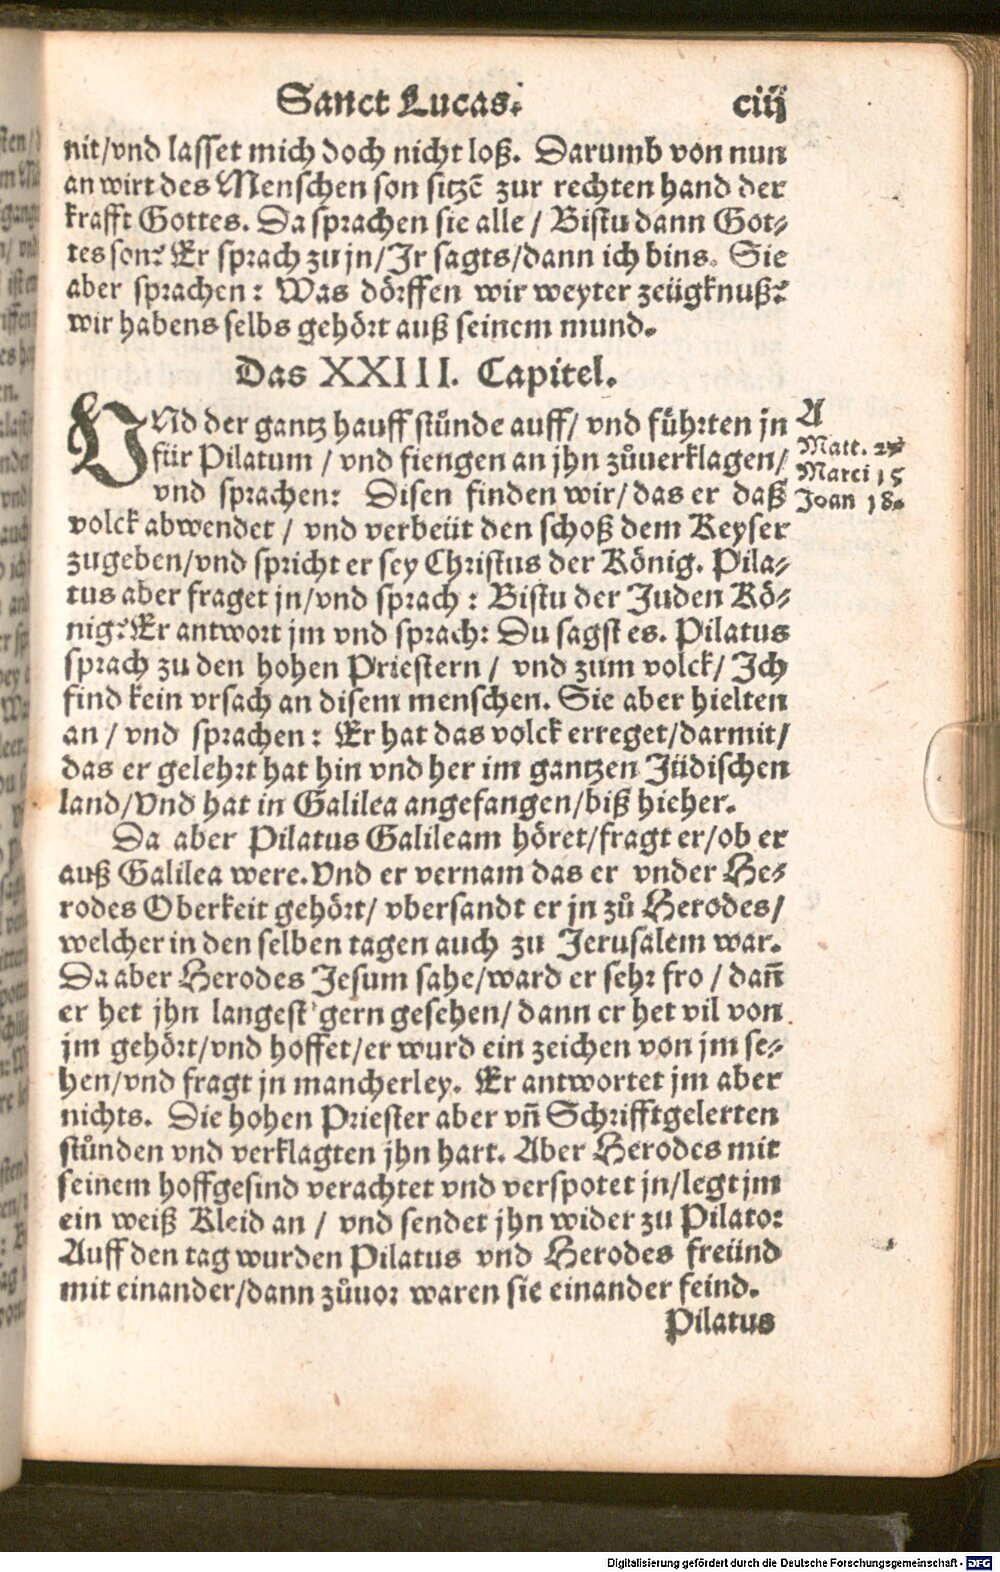 Sanct Lucas. ciij
nit/vnd lasset mich doch nicht loß. Darumb von nun
an wirt des Menschen son sitzē zur rechten hand der
krafft Gottes. Da sprachen sie alle / Bistu dann Got-
tes son? Er sprach zu jn/Jr sagts/dann ich bins. Sie
aber sprachen: Was dörffen wir weyter zeügknuß?
wir habens selbs gehört auß seinem mund.
Das XXIII. Capitel.
VNd der gantz hauff stůnde auff/ vnd fůhrten jn
für Pilatum / vnd fiengen an jhn zůuerklagen/
vnd sprachen: Disen finden wir/das er daß
volck abwendet / vnd verbeüt den schoß dem Keyser
zugeben/vnd spricht er sey Christus der König. Pila-
tus aber fraget jn/vnd sprach: Bistu der Juden Kö-
nig? Er antwort jm vnd sprach: Du sagst es. Pilatus
sprach zu den hohen Priestern / vnd zum volck/ Ich
find kein vrsach an disem menschen. Sie aber hielten
an / vnd sprachen: Er hat das volck erreget/darmit/
das er gelehrt hat hin vnd her im gantzen Jüdischen
land/Vnd hat in Galilea angefangen/biß hieher.
Da aber Pilatus Galileam höret/fragt er/ob er
auß Galilea were. Vnd er vernam das er vnder He-
rodes Oberkeit gehört/ vbersandt er jn zů Herodes/
welcher in den selben tagen auch zu Jerusalem war.
Da aber Herodes Jesum sahe/ward er sehr fro / dañ
er het jhn langest gern gesehen/ dann er het vil von
jm gehört/vnd hoffet/er wurd ein zeichen von jm se-
hen/vnd fragt jn mancherley. Er antwortet jm aber
nichts. Die hohen Priester aber vñ Schrifftgelerten
stůnden vnd verklagten jhn hart. Aber Herodes mit
seinem hoffgesind verachtet vnd verspotet jn/legt jm
ein weiß Kleid an / vnd sendet jhn wider zu Pilato:
Auff den tag wurden Pilatus vnd Herodes freünd
mit einander/dann zůuor waren sie einander feind.
Pilatus
A
Matt. 27
Marci 15
Joan 18.
Digitalisierung gefördert durch die Deutsche Forschungsgemeinschaft - DFG